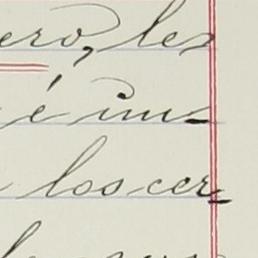 ero, les
é im-
los cer-